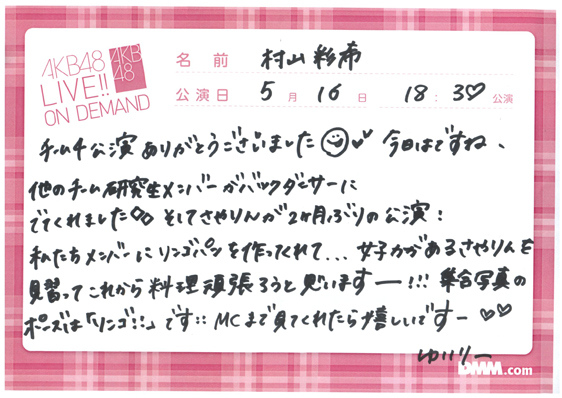 AKB48
LIVE!!
ON DEMAND
AKB
48
名前 村山彩希
公演日 5月16日 18:30公演
チーム4公演ありがとうございました 今日はですね、
他のチーム研究生メンバーがバックダンサーに
でてくれました そしてさやりんが2ヶ月ぶりの公演!
私たちメンバーにリンゴパンを作ってくれて...女子力があるさやりんを
見習ってこれから料理頑張ろうと思いますー!!! 集合写真の
ポーズは「リンゴ!!」です!! MCまで見てくれたら嬉しいですー
ゆいりー
DMM.com